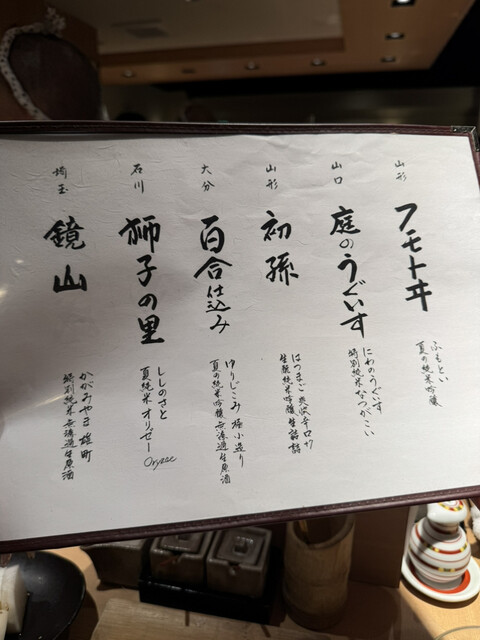 山形
フモトヰ
ふもとい
夏の純米吟醸
山口
庭のうぐいす
にわのうぐいす
特別純米なつがこい
山形
初孫
はつまご 爽快辛口切
生酛純米吟醸 生詰
大分
百合仕込み
ゆりじこみ 極小造り
夏の純米吟醸 無濾過生原酒
石川
獅子の里
ししのさと
夏純米 オリゼー
Oryzae
埼玉
鏡山
かがみやま 雄町
特別純米 無濾過生原酒